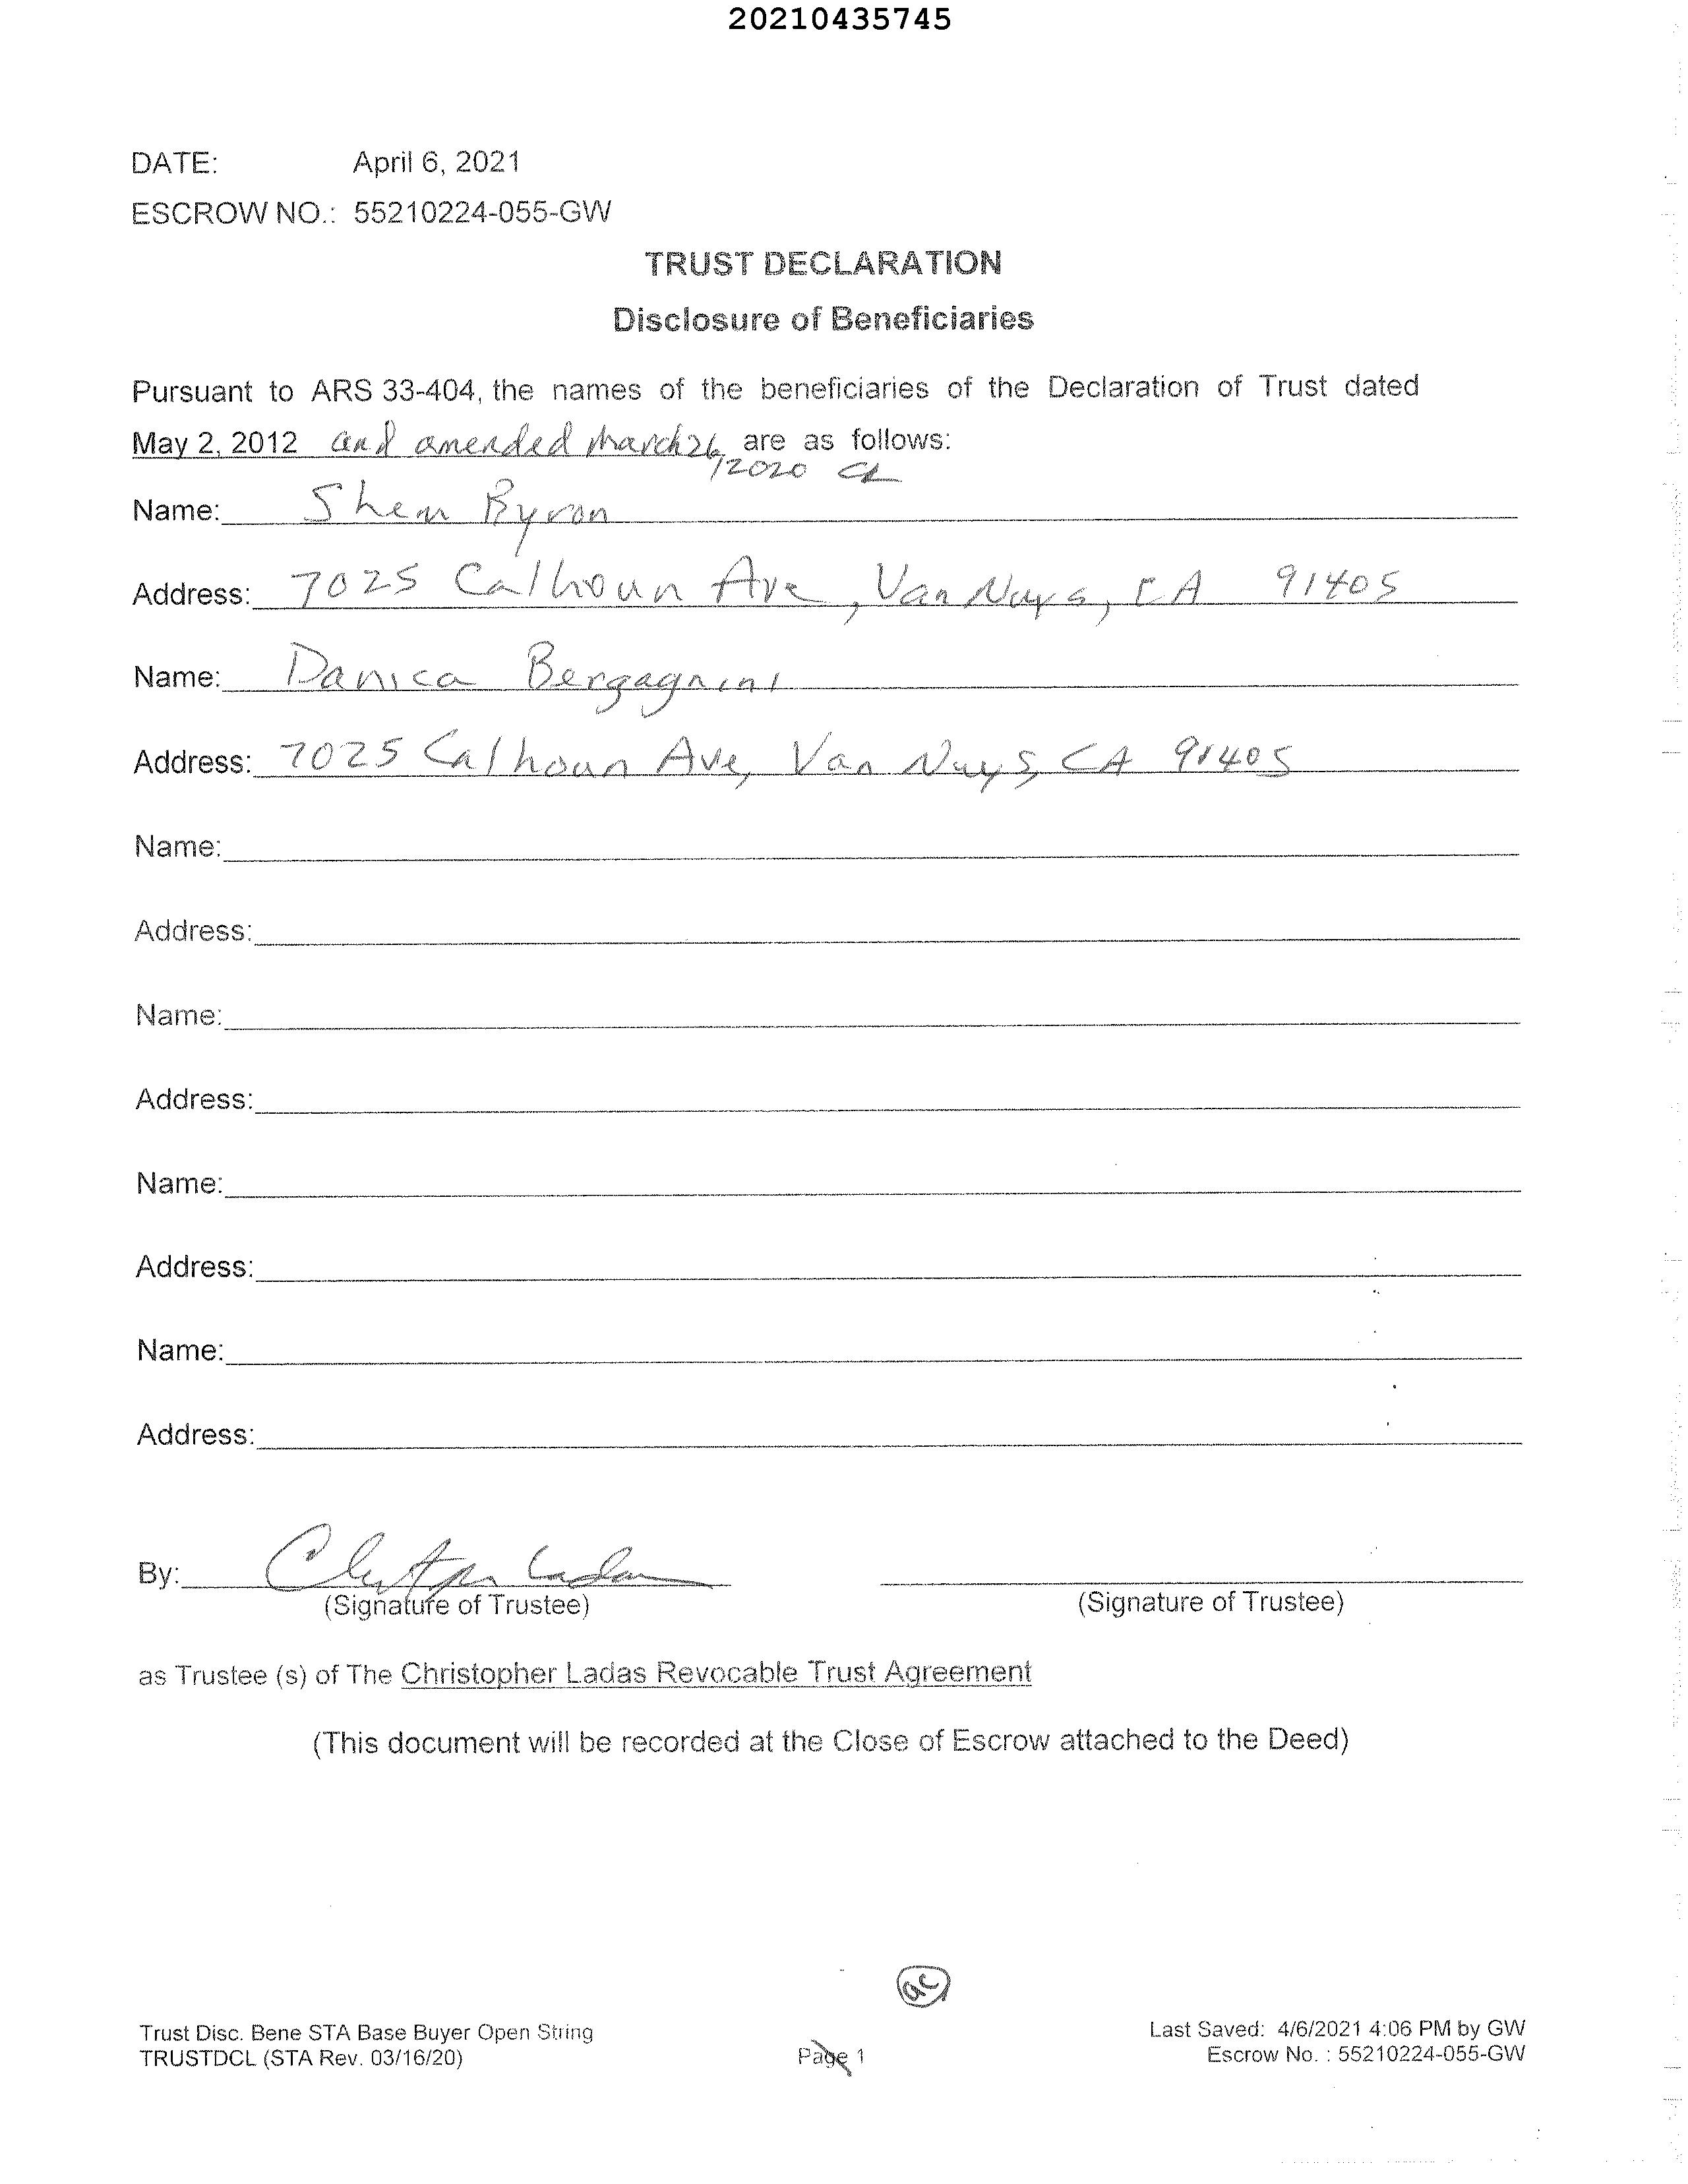 20210435745
DATE: April 6, 2021
ESCROW NO.: 55210224-055-GW
TRUST DECLARATION
Disclosure of Beneficiaries
Pursuant to ARS 33-404, the names of the beneficiaries of the Declaration of Trust dated
May 2, 2012 and amended March 26, are as follows:
2020 CL
Name: Shem Byron
Address: 7025 Calhoun Ave, Van Nuys, CA 91405
Name: Danica Bergagnini
Address: 7025 Calhoun Ave, Van Nuys, CA 91405
Name:
Address:
Name:
Address:
Name:
Address:
Name:
Address:
By:
(Signature of Trustee) (Signature of Trustee)
as Trustee (s) of The Christopher Ladas Revocable Trust Agreement
(This document will be recorded at the Close of Escrow attached to the Deed)
Trust Disc. Bene STA Base Buyer Open String Last Saved: 4/6/2021 4:06 PM by GW
TRUSTDCL (STA Rev. 03/16/20) Page 1 Escrow No. : 55210224-055-GW